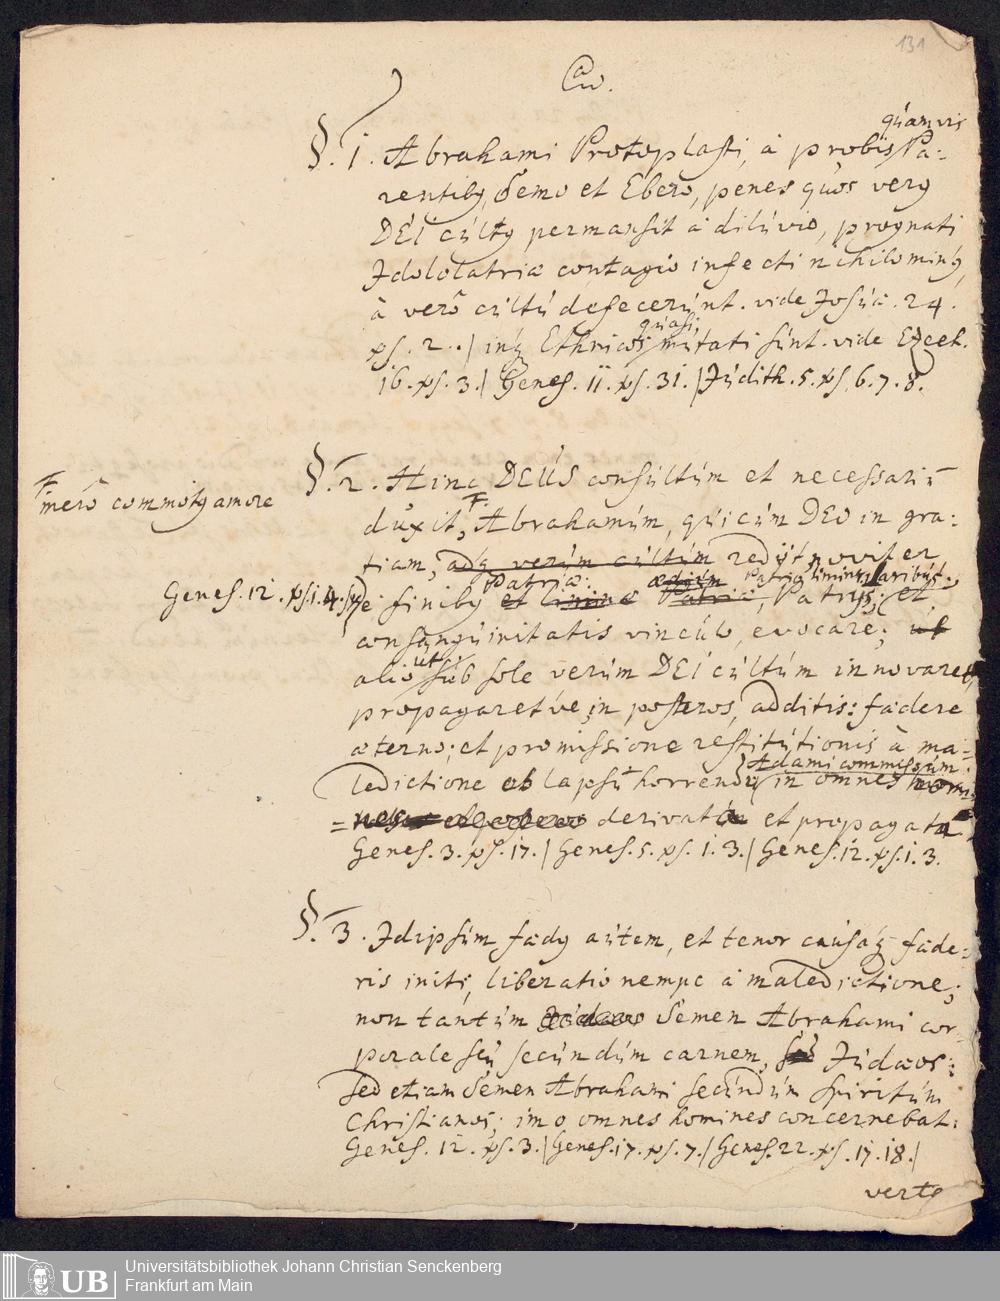 131
§. 1. Abrahami Protoplasti, à probis quamvis Pa-
rentibꝯ, Semo et Ebero, penes quos verꝯ
DEI cultꝯ permansit à diluvio, prognati
Idololatriæ contagio infecti nihilominꝯ,
à verô cultú defecerunt. vide Josúa. 24.
ps. 2. / inq Ethnicos quasi mutati sunt. vide Ezech.
16. ps. 3. / Genes. 11. ps. 31. / Júdith. 5. ps. 6. 7. 8.
§. 2. Hinc DEUS consultum et necessariū
duxit, F. Abrahamum, qui cum DEO in gra-
F merô commotꝯ amore
tiam, adq verum cultum redijt noviter
Genes. 12. ps. 1. 4.
e finibꝯ Patriæ: et Patria, Patrijs; et
consanguinitatis vinculo, evocare; ut
alio ut sub sole verum DEI cultum innovaret,
propagaretve in posteros, additis: fædere
æterno; et promissione restitutionis à ma-
ledictione ob lapsū horrendū Adami commissum in omnes homi-
nes derivata et propagata
Genes. 3. ps. 17. / Genes. 5. ps. 1. 3. / Genes. 12. ps. 1. 3.
§. 3. Idipsum fædꝯ autem, et tenor causaq fæde-
ris initi, liberatio nempe à maledictione;
non tantum Semen Abrahami cor-
porale seu secundum carnem, Judæos:
sed etiam Semen Abrahami secundum spiritum
Christianos; imo omnes homines concernebat.
Genes. 12. ps. 3. / Genes. 17. ps. 7. / Genes. 22. ps. 17. 18. /
verte
UB
Universitätsbibliothek Johann Christian Senckenberg
Frankfurt am Main